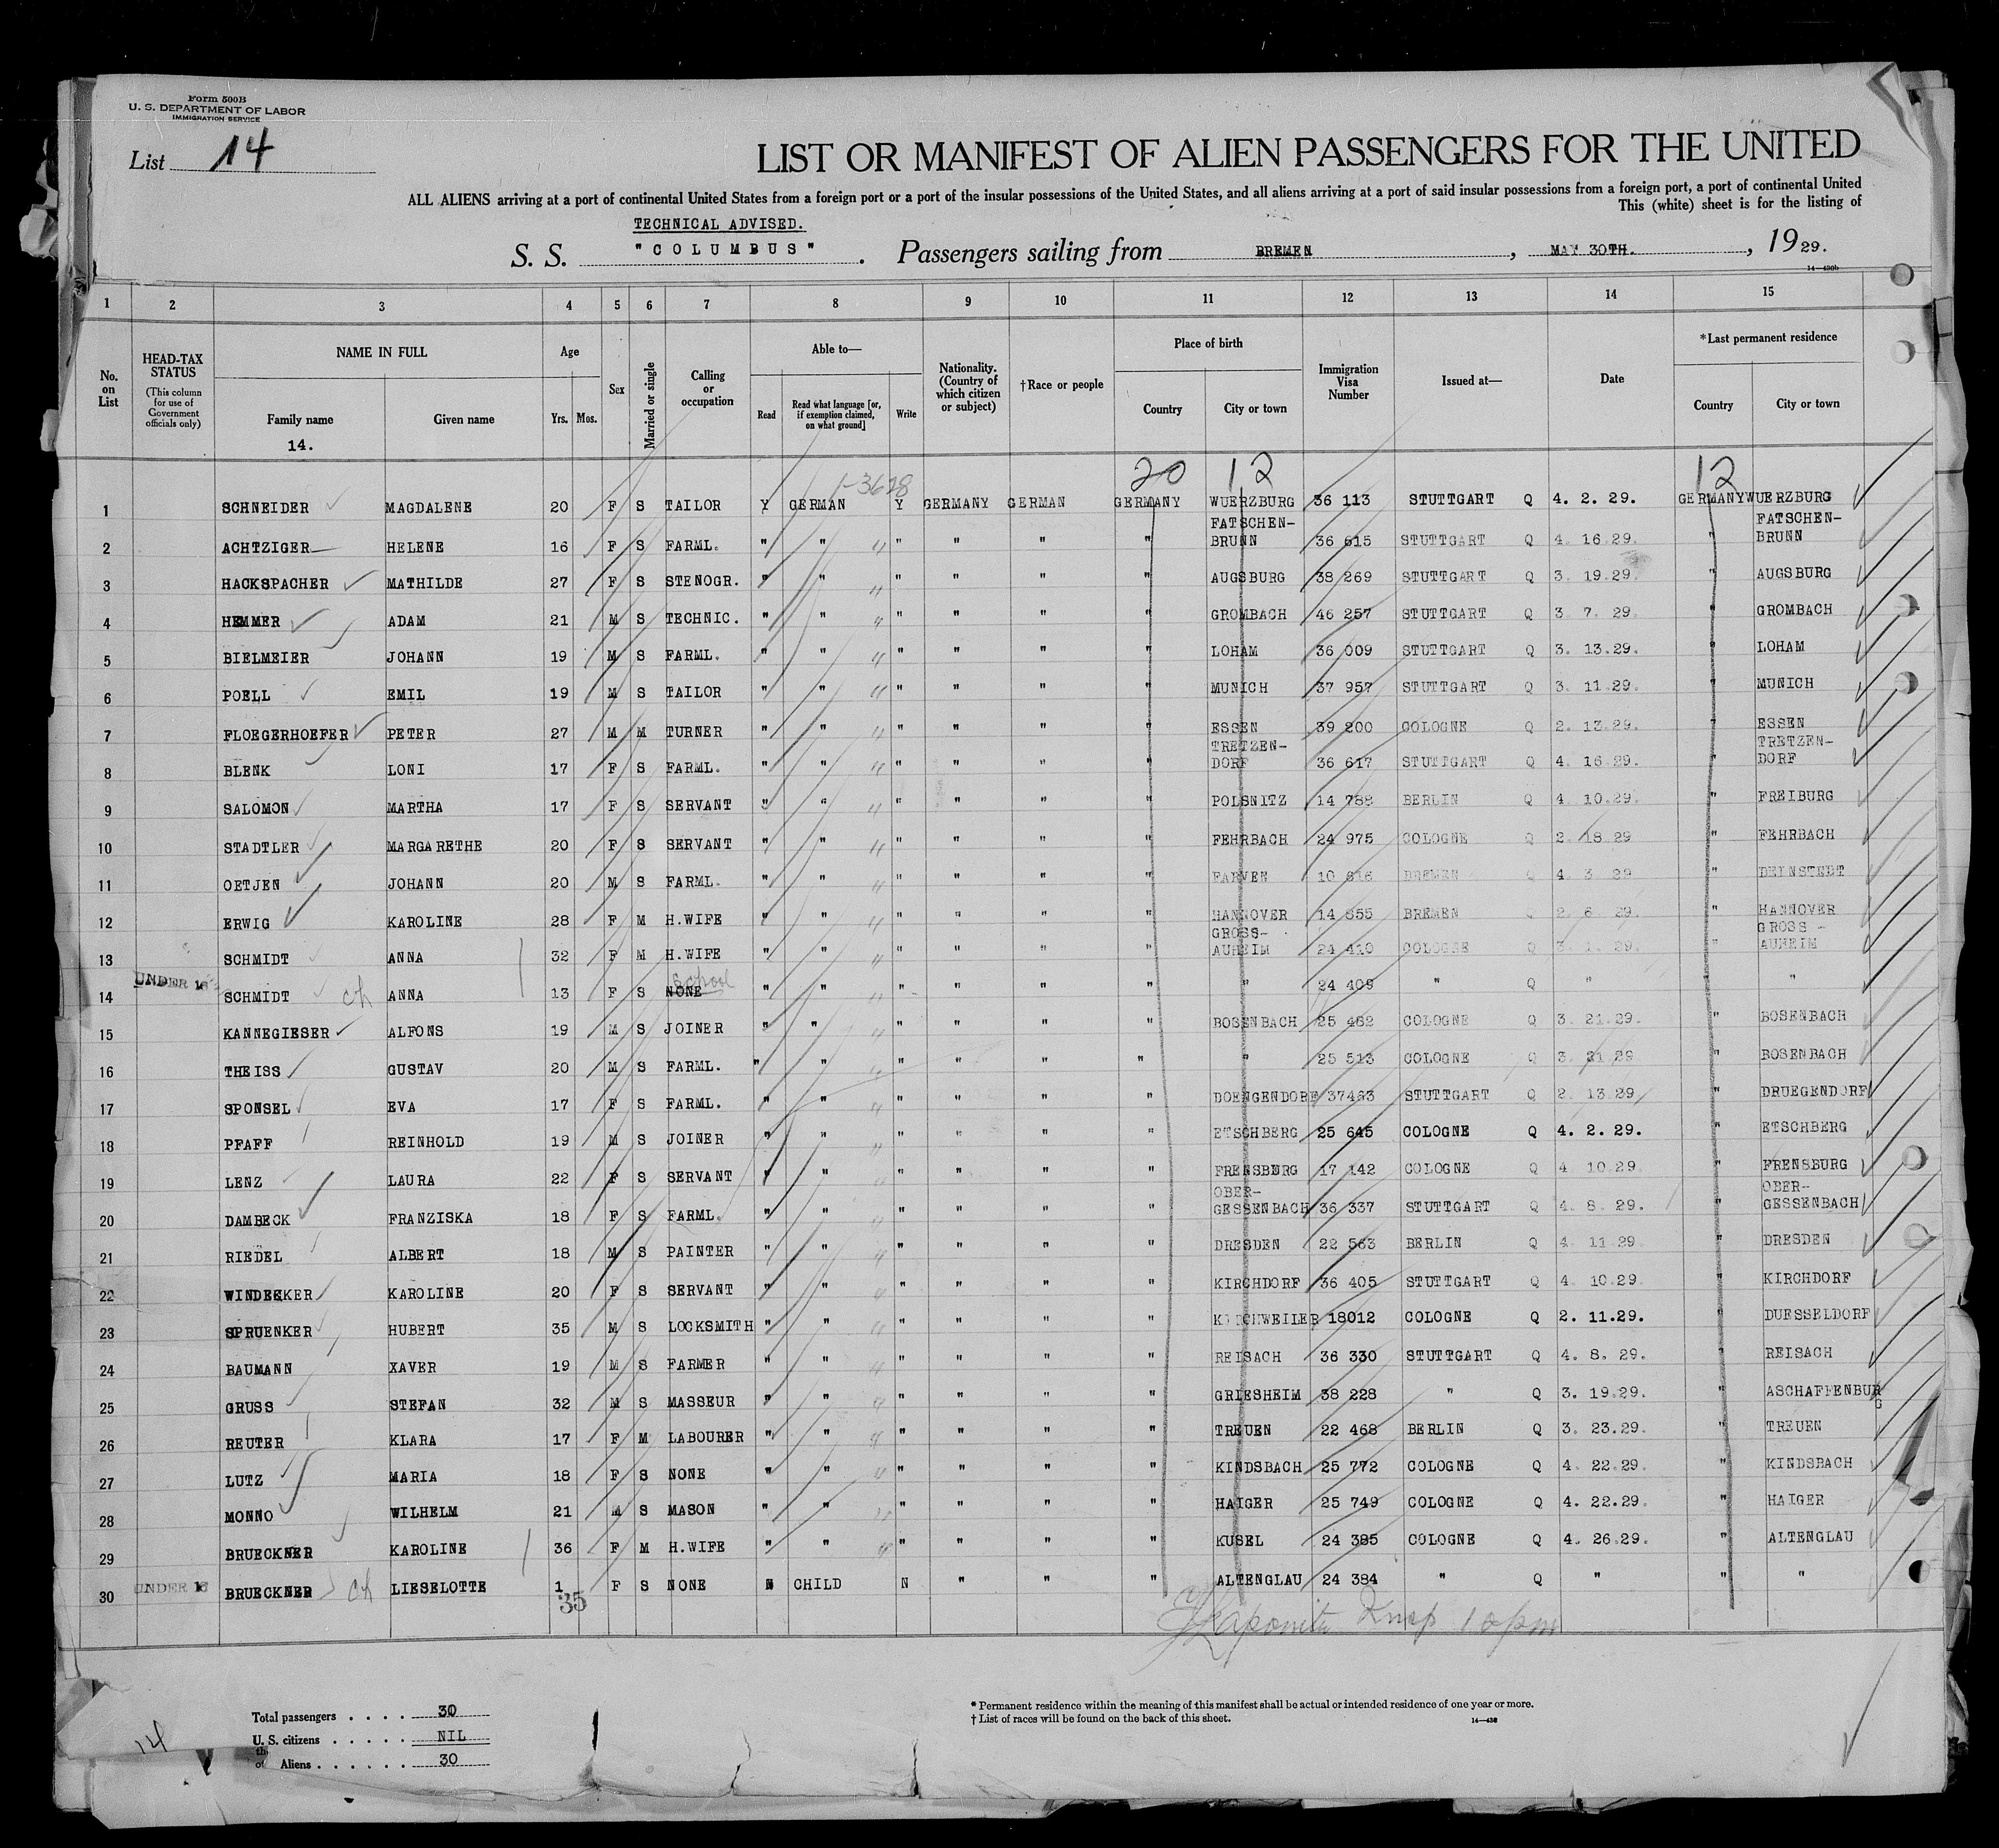 Form 500B
U. S. DEPARTMENT OF LABOR
IMMIGRATION SERVICE
List 14
LIST OR MANIFEST OF ALIEN PASSENGERS FOR THE UNITED
ALL ALIENS arriving at a port of continental United States from a foreign port or a port of the insular possessions of the United States, and all aliens arriving at a port of said insular possessions from a foreign port, a port of continental United
This (white) sheet is for the listing of
TECHNICAL ADVISED.
S. S. "COLUMBUS". Passengers sailing from BREMEN, MAY 30TH., 1929.
14—430b
1 2 3 4 5 6 7 8 9 10 11 12 13 14 15
No. on List
HEAD-TAX STATUS
(This column for use of Government officials only)
NAME IN FULL
Family name
Given name
14.
Age
Yrs. Mos.
Sex
Married or single
Calling or occupation
Able to—
Read
Read what language [or, if exemption claimed, on what ground]
Write
Nationality. (Country of which citizen or subject)
†Race or people
Place of birth
Country
City or town
Immigration Visa Number
Issued at—
Date
*Last permanent residence
Country
City or town
20 12 12
1-3628
1 SCHNEIDER MAGDALENE 20 F S TAILOR Y GERMAN Y GERMANY GERMAN GERMANY WUERZBURG 36 113 STUTTGART Q 4. 2. 29. GERMANY WUERZBURG
2 ACHTZIGER HELENE 16 F S FARML. " " " " " " FATSCHEN-BRUNN 36 615 STUTTGART Q 4. 16.29. " FATSCHEN-BRUNN
3 HACKSPACHER MATHILDE 27 F S STENOGR. " " " " " " AUGSBURG 38 269 STUTTGART Q 3. 19.29. " AUGSBURG
4 HEMMER ADAM 21 M S TECHNIC. " " " " " " GROMBACH 46 257 STUTTGART Q 3. 7. 29. " GROMBACH
5 BIELMEIER JOHANN 19 M S FARML. " " " " " " LOHAM 36 009 STUTTGART Q 3. 13.29. " LOHAM
6 POELL EMIL 19 M S TAILOR " " " " " " MUNICH 37 957 STUTTGART Q 3. 11.29. " MUNICH
7 FLOEGERHOEFER PETER 27 M M TURNER " " " " " " ESSEN 39 200 COLOGNE Q 2. 13.29. " ESSEN
8 BLENK LONI 17 F S FARML. " " " " " " TRETZEN-DORF 36 617 STUTTGART Q 4. 16.29. " TRETZEN-DORF
9 SALOMON MARTHA 17 F S SERVANT " " " " " " POLSNITZ 14 788 BERLIN Q 4. 10.29. " FREIBURG
10 STADTLER MARGARETHE 20 F S SERVANT " " " " " " FEHRBACH 24 975 COLOGNE Q 2. 18 29 " FEHRBACH
11 OETJEN JOHANN 20 M S FARML. " " " " " " FARVEN 10 616 BREMEN Q 4. 3 29 " DEINSTEDT
12 ERWIG KAROLINE 28 F M H.WIFE " " " " " " HANNOVER 14 555 BREMEN Q 2. 6. 29. " HANNOVER
13 SCHMIDT ANNA 32 F M H.WIFE " " " " " " GROSS-AUHEIM 24 410 COLOGNE Q 3. 1. 29. " GROSS-AUHEIM
14 UNDER 16 SCHMIDT ch ANNA 13 F S NONE School " " " " " " " 24 409 " Q " "
15 KANNEGIESER ALFONS 19 M S JOINER " " " " " " BOSENBACH 25 482 COLOGNE Q 3. 21.29. " BOSENBACH
16 THEISS GUSTAV 20 M S FARML. " " " " " " " 25 513 COLOGNE Q 3. 21 29 " BOSENBACH
17 SPONSEL EVA 17 F S FARML. " " " " " " DOENGENDORF 37463 STUTTGART Q 2. 13.29 " DRUEGENDORF
18 PFAFF REINHOLD 19 M S JOINER " " " " " " ETSCHBERG 25 645 COLOGNE Q 4. 2. 29. " ETSCHBERG
19 LENZ LAURA 22 F S SERVANT " " " " " " FRENSBURG 17 142 COLOGNE Q 4 10.29. " FRENSBURG
20 DAMBECK FRANZISKA 18 F S FARML. " " " " " " OBER-GESSENBACH 36 337 STUTTGART Q 4. 8. 29. " OBER-GESSENBACH
21 RIEDEL ALBERT 18 M S PAINTER " " " " " " DRESDEN 22 563 BERLIN Q 4 11.29 " DRESDEN
22 WINDECKER KAROLINE 20 F S SERVANT " " " " " " KIRCHDORF 36 405 STUTTGART Q 4 10.29. " KIRCHDORF
23 SPRUENKER HUBERT 35 M S LOCKSMITH " " " " " " 18012 COLOGNE Q 2. 11.29. " DUESSELDORF
24 BAUMANN XAVER 19 M S FARMER " " " " " " REISACH 36 330 STUTTGART Q 4. 8. 29. " REISACH
25 GRUSS STEFAN 32 M S MASSEUR " " " " " " GRIESHEIM 38 228 " Q 3. 19.29. " ASCHAFFENBURG
26 REUTER KLARA 17 F M LABOURER " " " " " " TREUEN 22 468 BERLIN Q 3. 23.29. " TREUEN
27 LUTZ MARIA 18 F S NONE " " " " " " KINDSBACH 25 772 COLOGNE Q 4. 22.29. " KINDSBACH
28 MONNO WILHELM 21 M S MASON " " " " " " HAIGER 25 749 COLOGNE Q 4. 22.29. " HAIGER
29 BRUECKNER KAROLINE 36 F M H.WIFE " " " " " " KUSEL 24 385 COLOGNE Q 4. 26.29. " ALTENGLAU
30 UNDER 16 BRUECKNER ch LIESELOTTE 1 F S NONE N CHILD N " " " ALTENGLAU 24 384 " Q " " "
35
10 pm
Total passengers . . . . 30
U. S. citizens . . . . . NIL
Aliens . . . . . . 30
14
* Permanent residence within the meaning of this manifest shall be actual or intended residence of one year or more.
† List of races will be found on the back of this sheet.
14—430